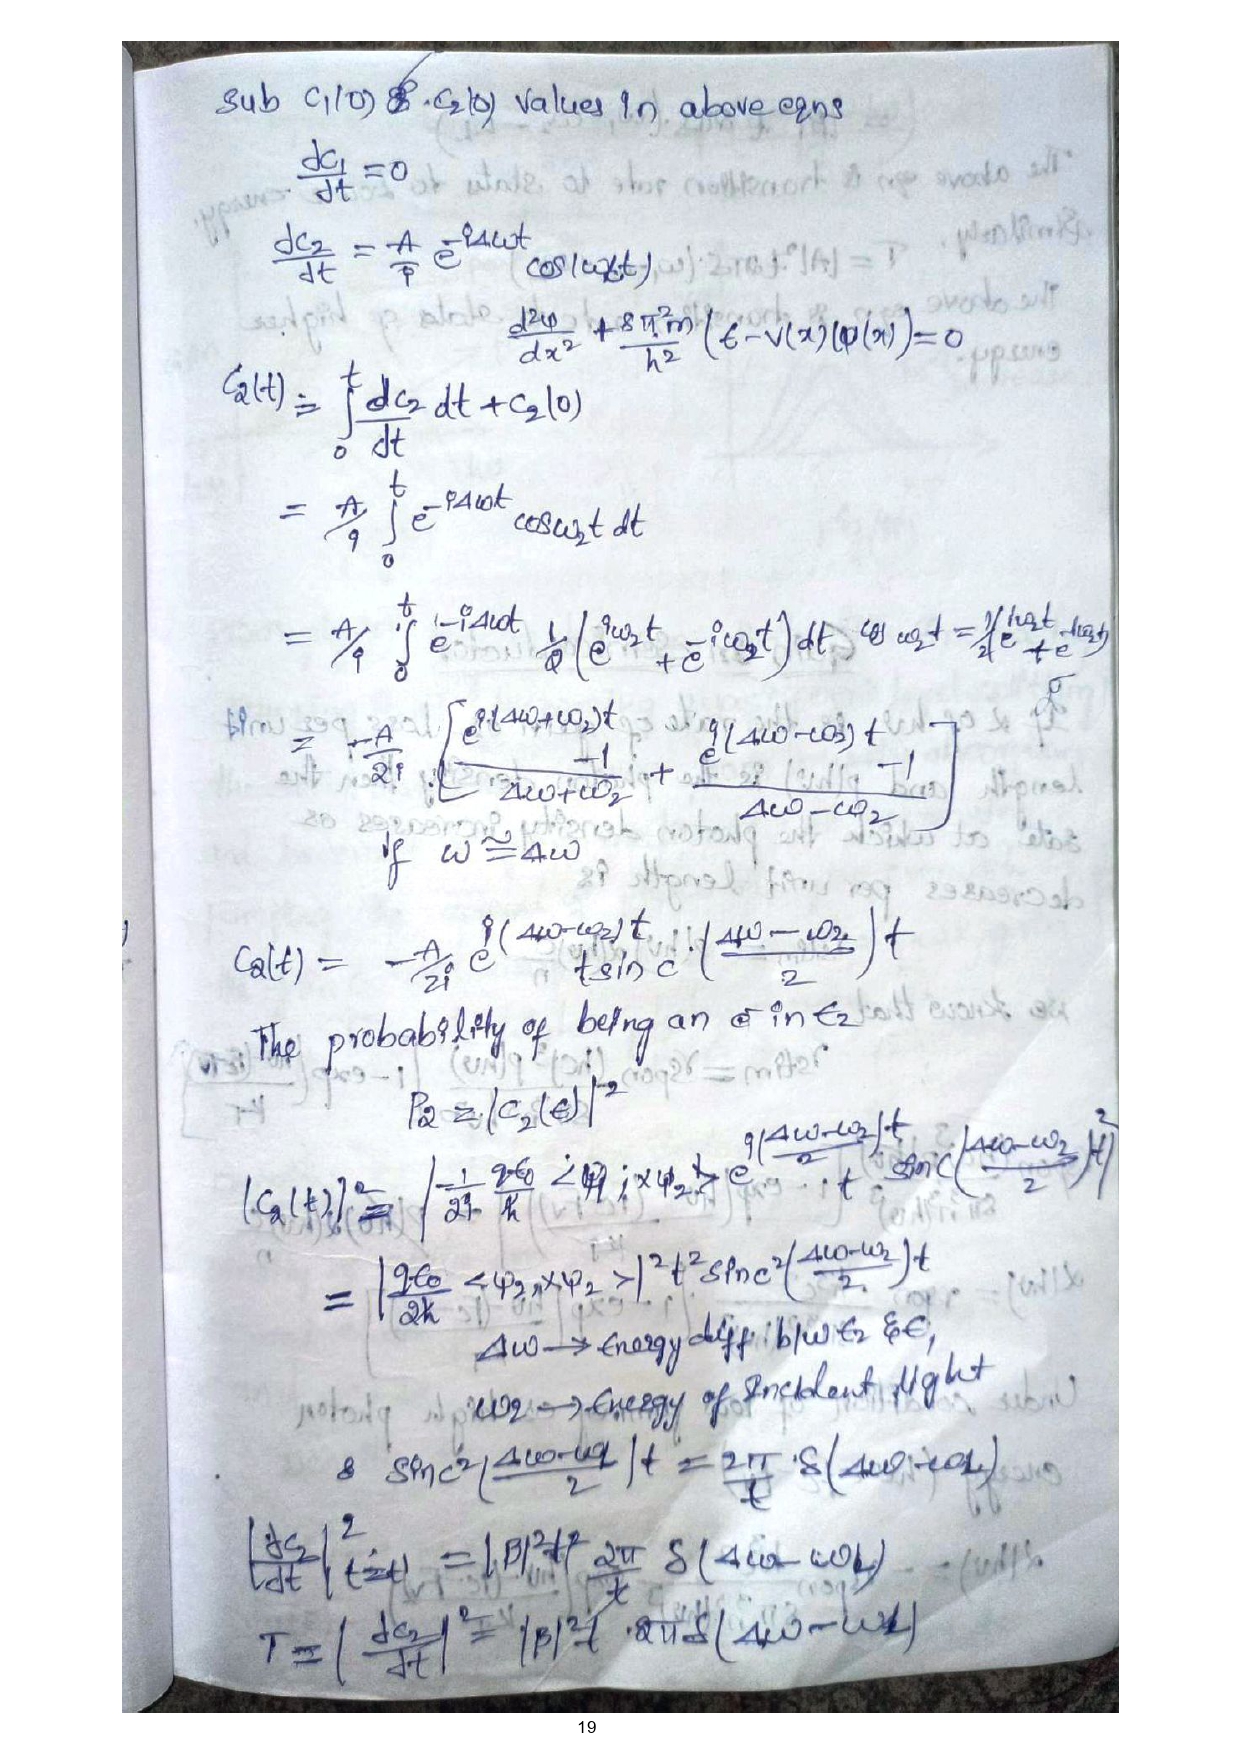 Sub C₁(0) & C₂(0) values in above eqns
dC₁/dt = 0
dC₂/dt = A/i e^-iΔωt cos(ω₂t)
d²φ/dx² + 8π²m/h² (E - V(x)(φ(x)) = 0
C₂(t) = ∫₀^t dC₂/dt dt + C₂(0)
= A/i ∫₀^t e^-iΔωt cosω₂t dt
= A/i ∫₀^t e^-iΔωt 1/2 (e^iω₂t + e^-iω₂t) dt cos ω₂t = 1/2 (e^iω₂t + e^-iω₂t)
= -A/2i [e^i(Δω+ω₂)t - 1 / Δω+ω₂ + e^i(Δω-ω₂)t - 1 / Δω-ω₂]
if ω ≅ Δω
C₂(t) = -A/2i e^i(Δω-ω₂)t t sin c (Δω-ω₂/2)t
The probability of being an e⁻ in E₂
P₂ = |C₂(t)|²
|C₂(t)|² = |-1/2i qE₀/ħ <φ₁, xφ₂> e^i(Δω-ω₂/2)t t sinc(Δω-ω₂/2)t|²
= |qE₀/2ħ <φ₂, xφ₂>|² t² sinc² (Δω-ω₂/2)t
Δω → Energy diff b/w E₂ & E₁
ω₂ → Energy of Incident light
& sinc² (Δω-ω₂/2)t = 2π/t · δ(Δω-ωL)
|dC₂/dt|² t=t = |B|² t² 2π/t δ(Δω-ωL)
T = |dC₂/dt|² = |B|² t · 2πδ(Δω-ωL)
19